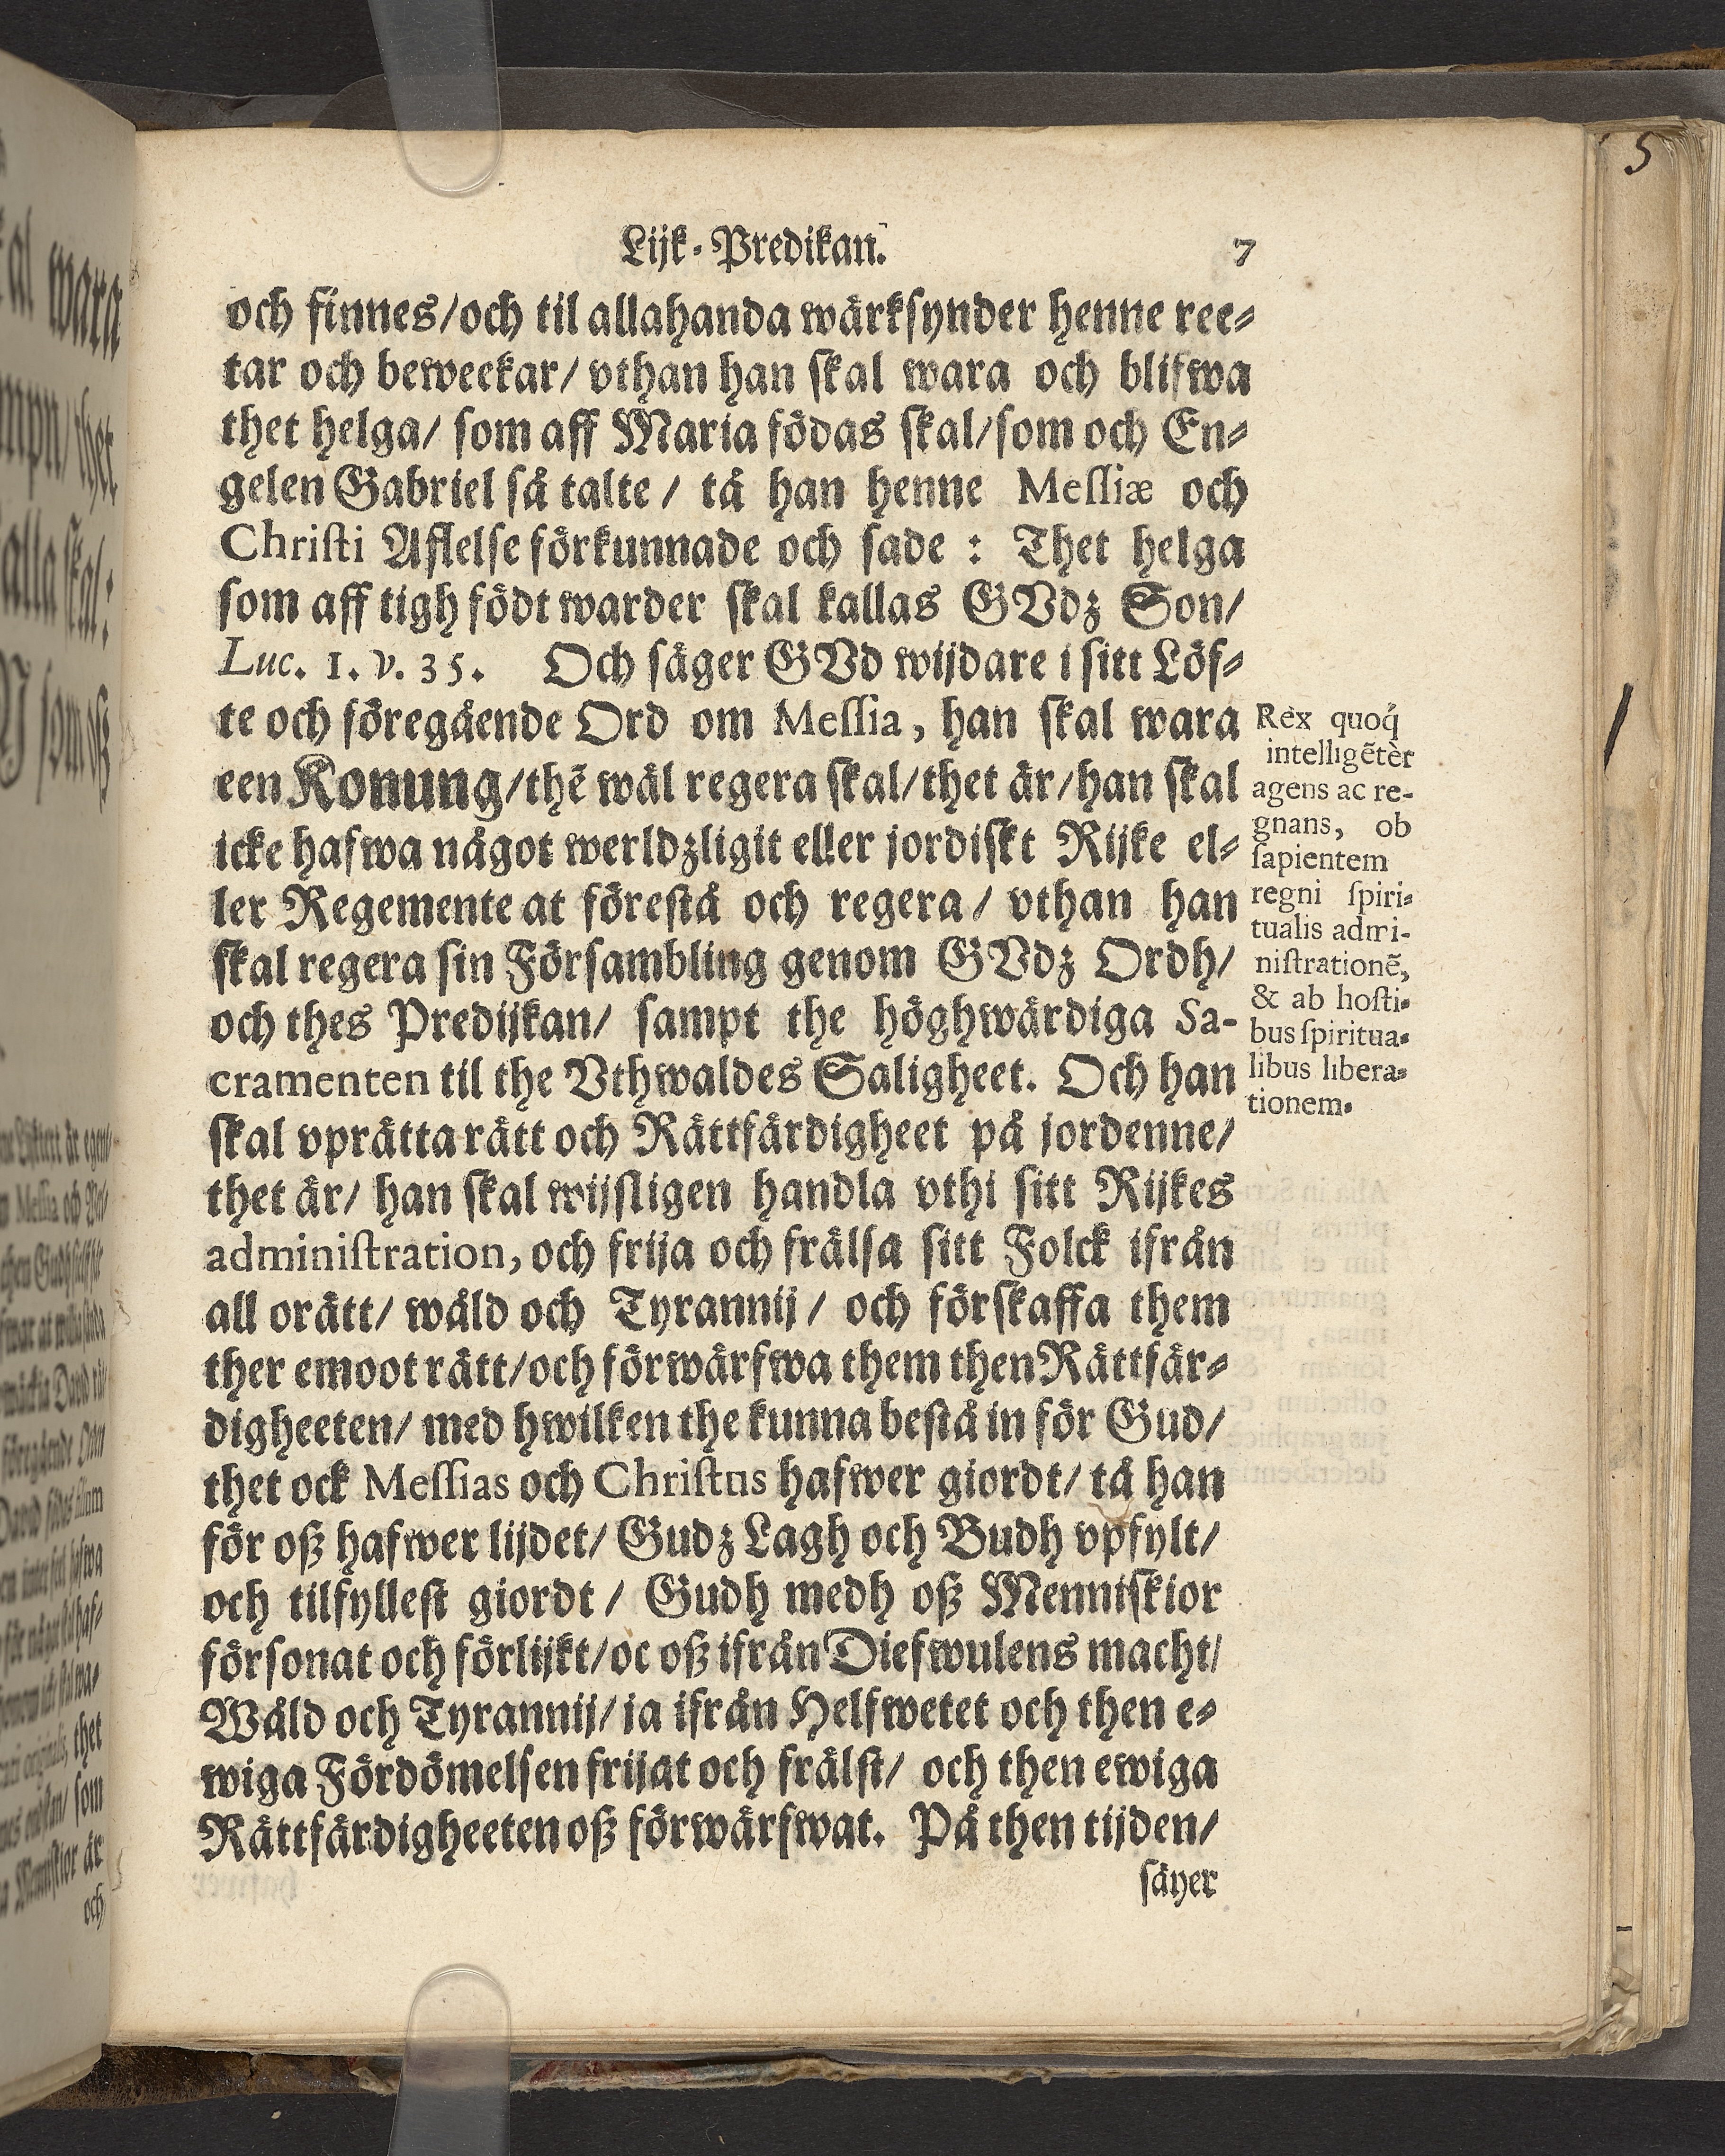 Lijk-Predikan. 7
och finnes/och til allahanda wärksynder henne ree-
tar och beweekar/ vthan han skal wara och blifwa
thet helga/ som aff Maria födas skal/som och En-
gelen Gabriel så talte / tå han henne Messiæ och
Christi Aflelse förkunnade och sade : Thet helga
som aff tigh födt warder skal kallas GVdz Son/
Luc. 1. v. 35. Och säger GVd wijdare i sitt Löf-
te och föregående Ord om Messia, han skal wara
een Konung/thē wäl regera skal/thet är/han skal
icke hafwa något werldzligit eller jordiskt Rijke el-
ler Regemente at förestå och regera / vthan han
skal regera sin Försambling genom GVdz Ordh/
och thes Predijkan/ sampt the höghwärdiga Sa-
cramenten til the Vthwaldes Saligheet. Och han
skal vprätta rätt och Rättfärdigheet på jordenne/
thet är/ han skal wijsligen handla vthi sitt Rijkes
administration, och frija och frälsa sitt Folck ifrån
all orätt/ wåld och Tyrannij / och förskaffa them
ther emoot rätt/och förwärfwa them then Rättfär-
digheeten/ med hwilken the kunna bestå in för Gud/
thet ock Messias och Christus hafwer giordt/ tå han
för oß hafwer lijdet/ Gudz Lagh och Budh vpfylt/
och tilfyllest giordt / Gudh medh oß Menniskior
försonat och förlijkt/oc oß ifrån Diefwulens macht/
Wåld och Tyrannij/ ja ifrån Helfwetet och then e-
wiga Fördömelsen frijat och frälst/ och then ewiga
Rättfärdigheeten oß förwärfwat. På then tijden/
säyer
Rex quoq́
intelligētèr
agens ac re-
gnans, ob
sapientem
regni spiri-
tualis admi-
nistrationē,
& ab hosti-
bus spiritua-
libus libera-
tionem.
5